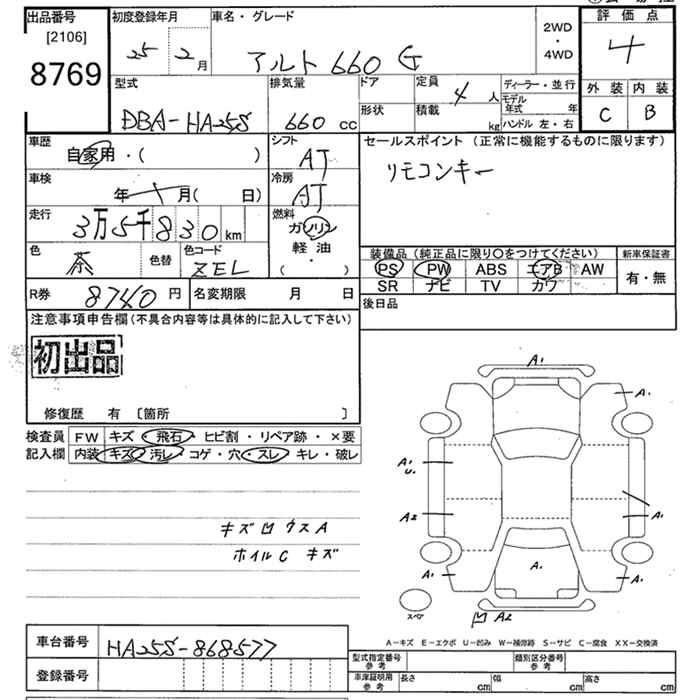 出品番号
[2106]
8769
初度登録年月
25 2月
車名・グレード
アルト 660 G
2WD
・
4WD
評価点
4
外装 内装
C B
型式
DBA-HA25S
排気量
660 cc
ドア
形状
定員
4 人
積載
kg
ディーラー・並行
モデル年式 年
ハンドル 左・右
車歴
自家用・( )
シフト
AT
車検
年 月( 日)
冷房
AT
走行
3万5千830km
燃料
ガソリン
軽油
・
( )
色
茶
色替
色コード
ZEL
セールスポイント (正常に機能するものに限ります)
リモコンキー
装備品(純正品に限り○をつけてください)
新車保証書
PS PW ABS エアB AW
SR ナビ TV カワ
有・無
R券 8740円
名変期限 月 日
後日品
注意事項申告欄(不具合内容等は具体的に記入して下さい)
初出品
修復歴 有 [箇所 ]
検査員
記入欄
FW キズ・飛石・ヒビ割・リペア跡・×要
内装 キズ・汚レ・コゲ・穴・スレ・キレ・破レ
キズ凹ウスA
ホイルC キズ
A1
A1
A1
U.
A2
A1
A1
A1
A.
凹 A2
スペア
A-キズ E-エクボ U-凹み W-補修跡 S-サビ C-腐食 XX-交換済
車台番号 HA25S-868577
登録番号
型式指定番号
参考
類別区分番号
参考
車庫証明用
参考
長さ cm
幅 cm
高さ cm